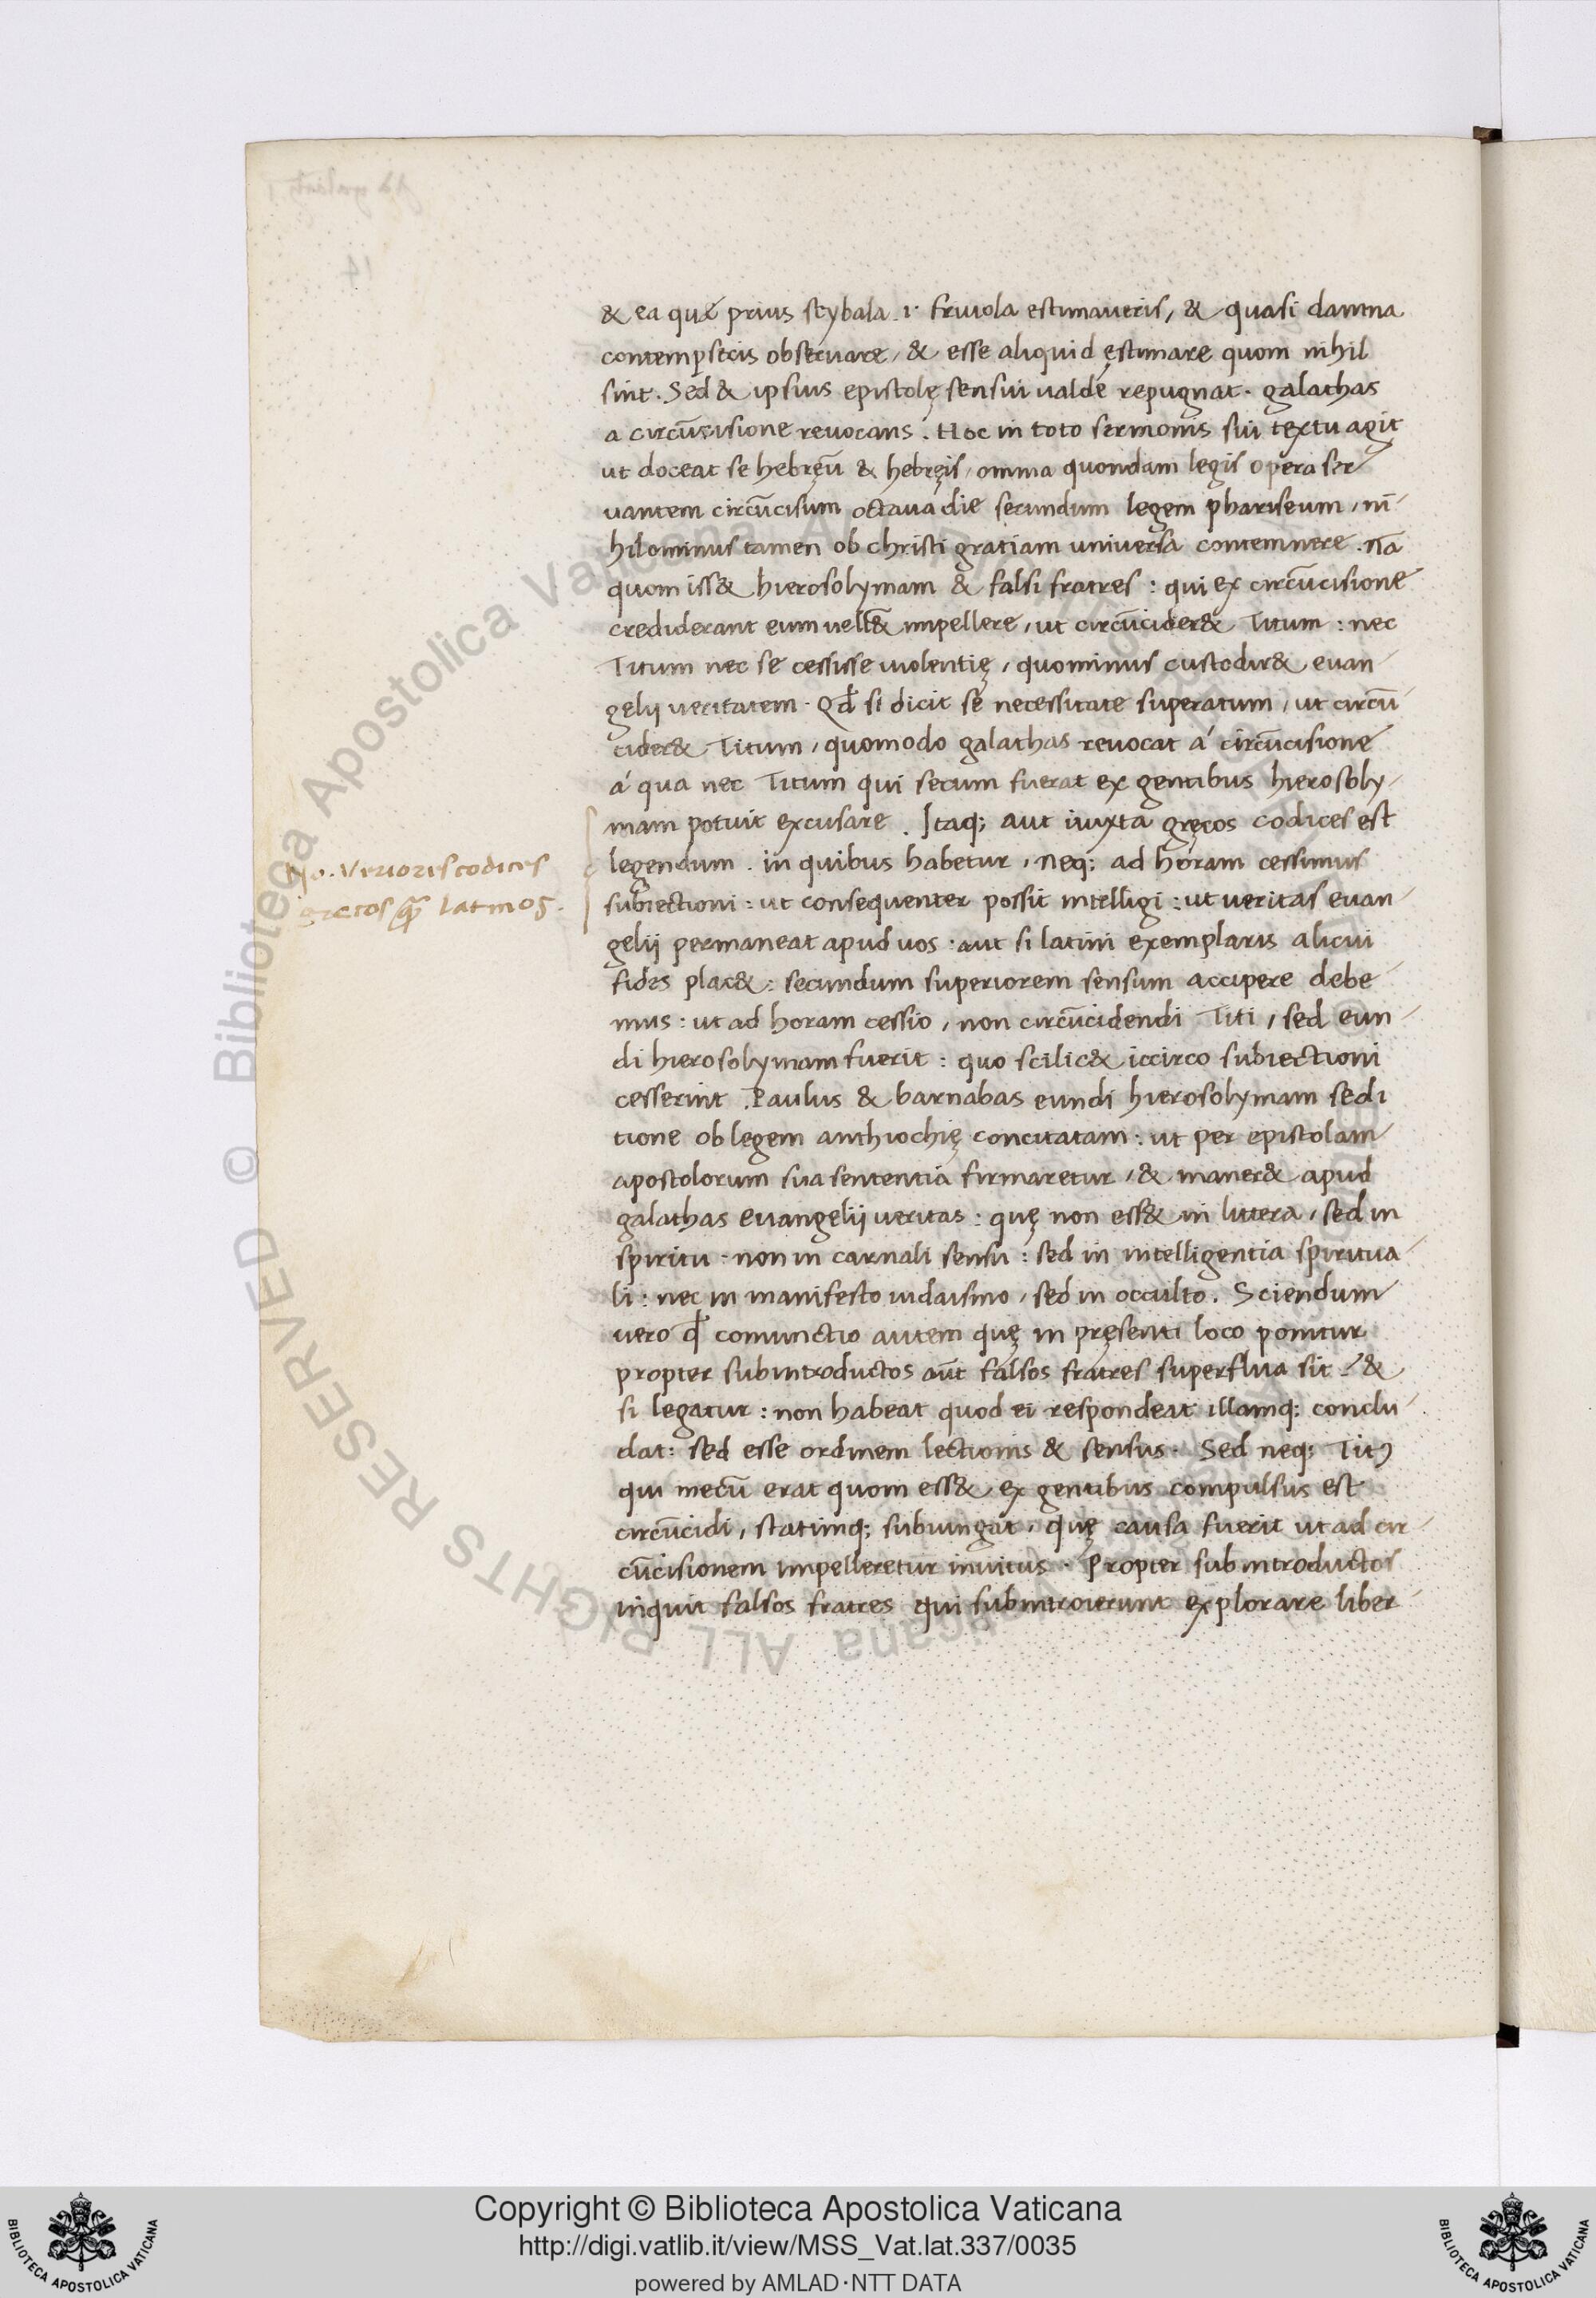 & ea quę prius scybala .i. friuola estimaueris, & quasi damna
contempseris obseruare, & esse aliquid ęstimare quom nihil
sint. Sed & ipsius epistolę sensui ualdé repugnat. galathas
a circūcisione reuocans. Hoc in toto sermonis sui textu agit
ut doceat se hebręū & hebręis, omnia quondam legis opera ser
uantem circūcisum octaua die secundum legem phariseum, ni-
hilominus tamen ob christi gratiam universa contemnere. Nā
quom iss& hierosolymam & falsi fratres: qui ex circūcisione
crediderant eum uell& impellere, ut circūcider& Titum: nec
Titum nec se cessisse uiolentię, quominus custodir& euan-
gelij ueritatem. Qd̄ si dicit se necessitate superatum, ut circū
cider& Titum, quomodo galathas reuocat á circūcisione
á qua nec Titum qui secum fuerat ex gentibus hierosoly-
mam potuit excusare. Itaq; aut iuxta gręcos codices est
legendum. in quibus habetur, neq; ad horam cessimus
subiectioni: ut consequenter possit intelligi: ut ueritas euan-
gelij permaneat apud uos: aut si latini exemplaris alicui
fides plac&: secundum superiorem sensum accipere debe-
mus: ut ad horam cessio, non circūcidendi Titi, sed eun-
di hierosolymam fuerit: quo scilic& iccirco subiectioni
cesserint Paulus & barnabas eundi hierosolymam sedi
tione ob legem anthiochię concitatam: ut per epistolam
apostolorum sua sententia firmaretur, & maner& apud
galathas evangelij ueritas: quę non ess& in littera, sed in
spiritu: non in carnali sensu: sed in intelligentia spiritua-
li: nec in manifesto iudaismo, sed in occulto. Sciendum
uero qd̄ coniunctio autem quę in pręsenti loco ponitur
propter subintroductos aūt falsos fratres superflua sit. &
si legatur: non habeat quod ei respondeat illamq; conclu-
dat: sed esse ordinem lectionis & sensus. Sed neq; Titꝰ
qui mecū erat quom ess& ex gentibus compulsus est
circūcidi, statimq; subiungat, quę causa fuerit ut ad cir-
cūcisionem impelleretur inuitus. Propter subintroductos
inquit falsos fratres qui subintroierunt explorare liber-
No. Veriores codices
grecos quā latinos.
© Biblioteca Apostolica Vaticana ALL RIGHTS RESERVED
Copyright © Biblioteca Apostolica Vaticana
http://digi.vatlib.it/view/MSS_Vat.lat.337/0035
powered by AMLAD·NTT DATA
BIBLIOTECA APOSTOLICA VATICANA
BIBLIOTECA APOSTOLICA VATICANA